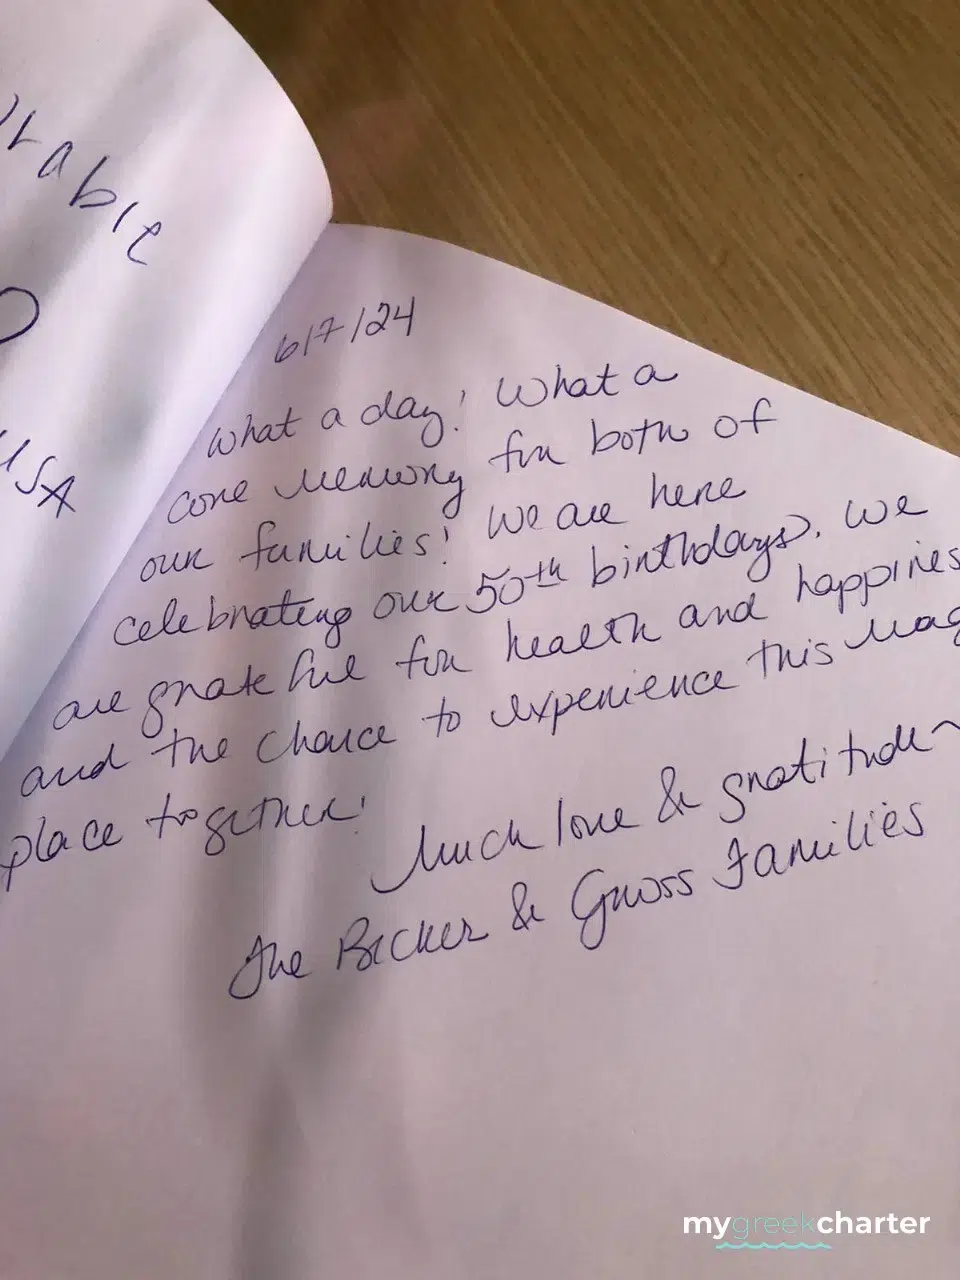 rable
USA
6/7/24
What a day! What a
core memory for both of
our families! We are here
celebrating our 50th birthdays. We
are grateful for health and happines
and the chance to experience this mag
place together!
Much love & gratitude~
The Becker & Gross Families
mygreekcharter